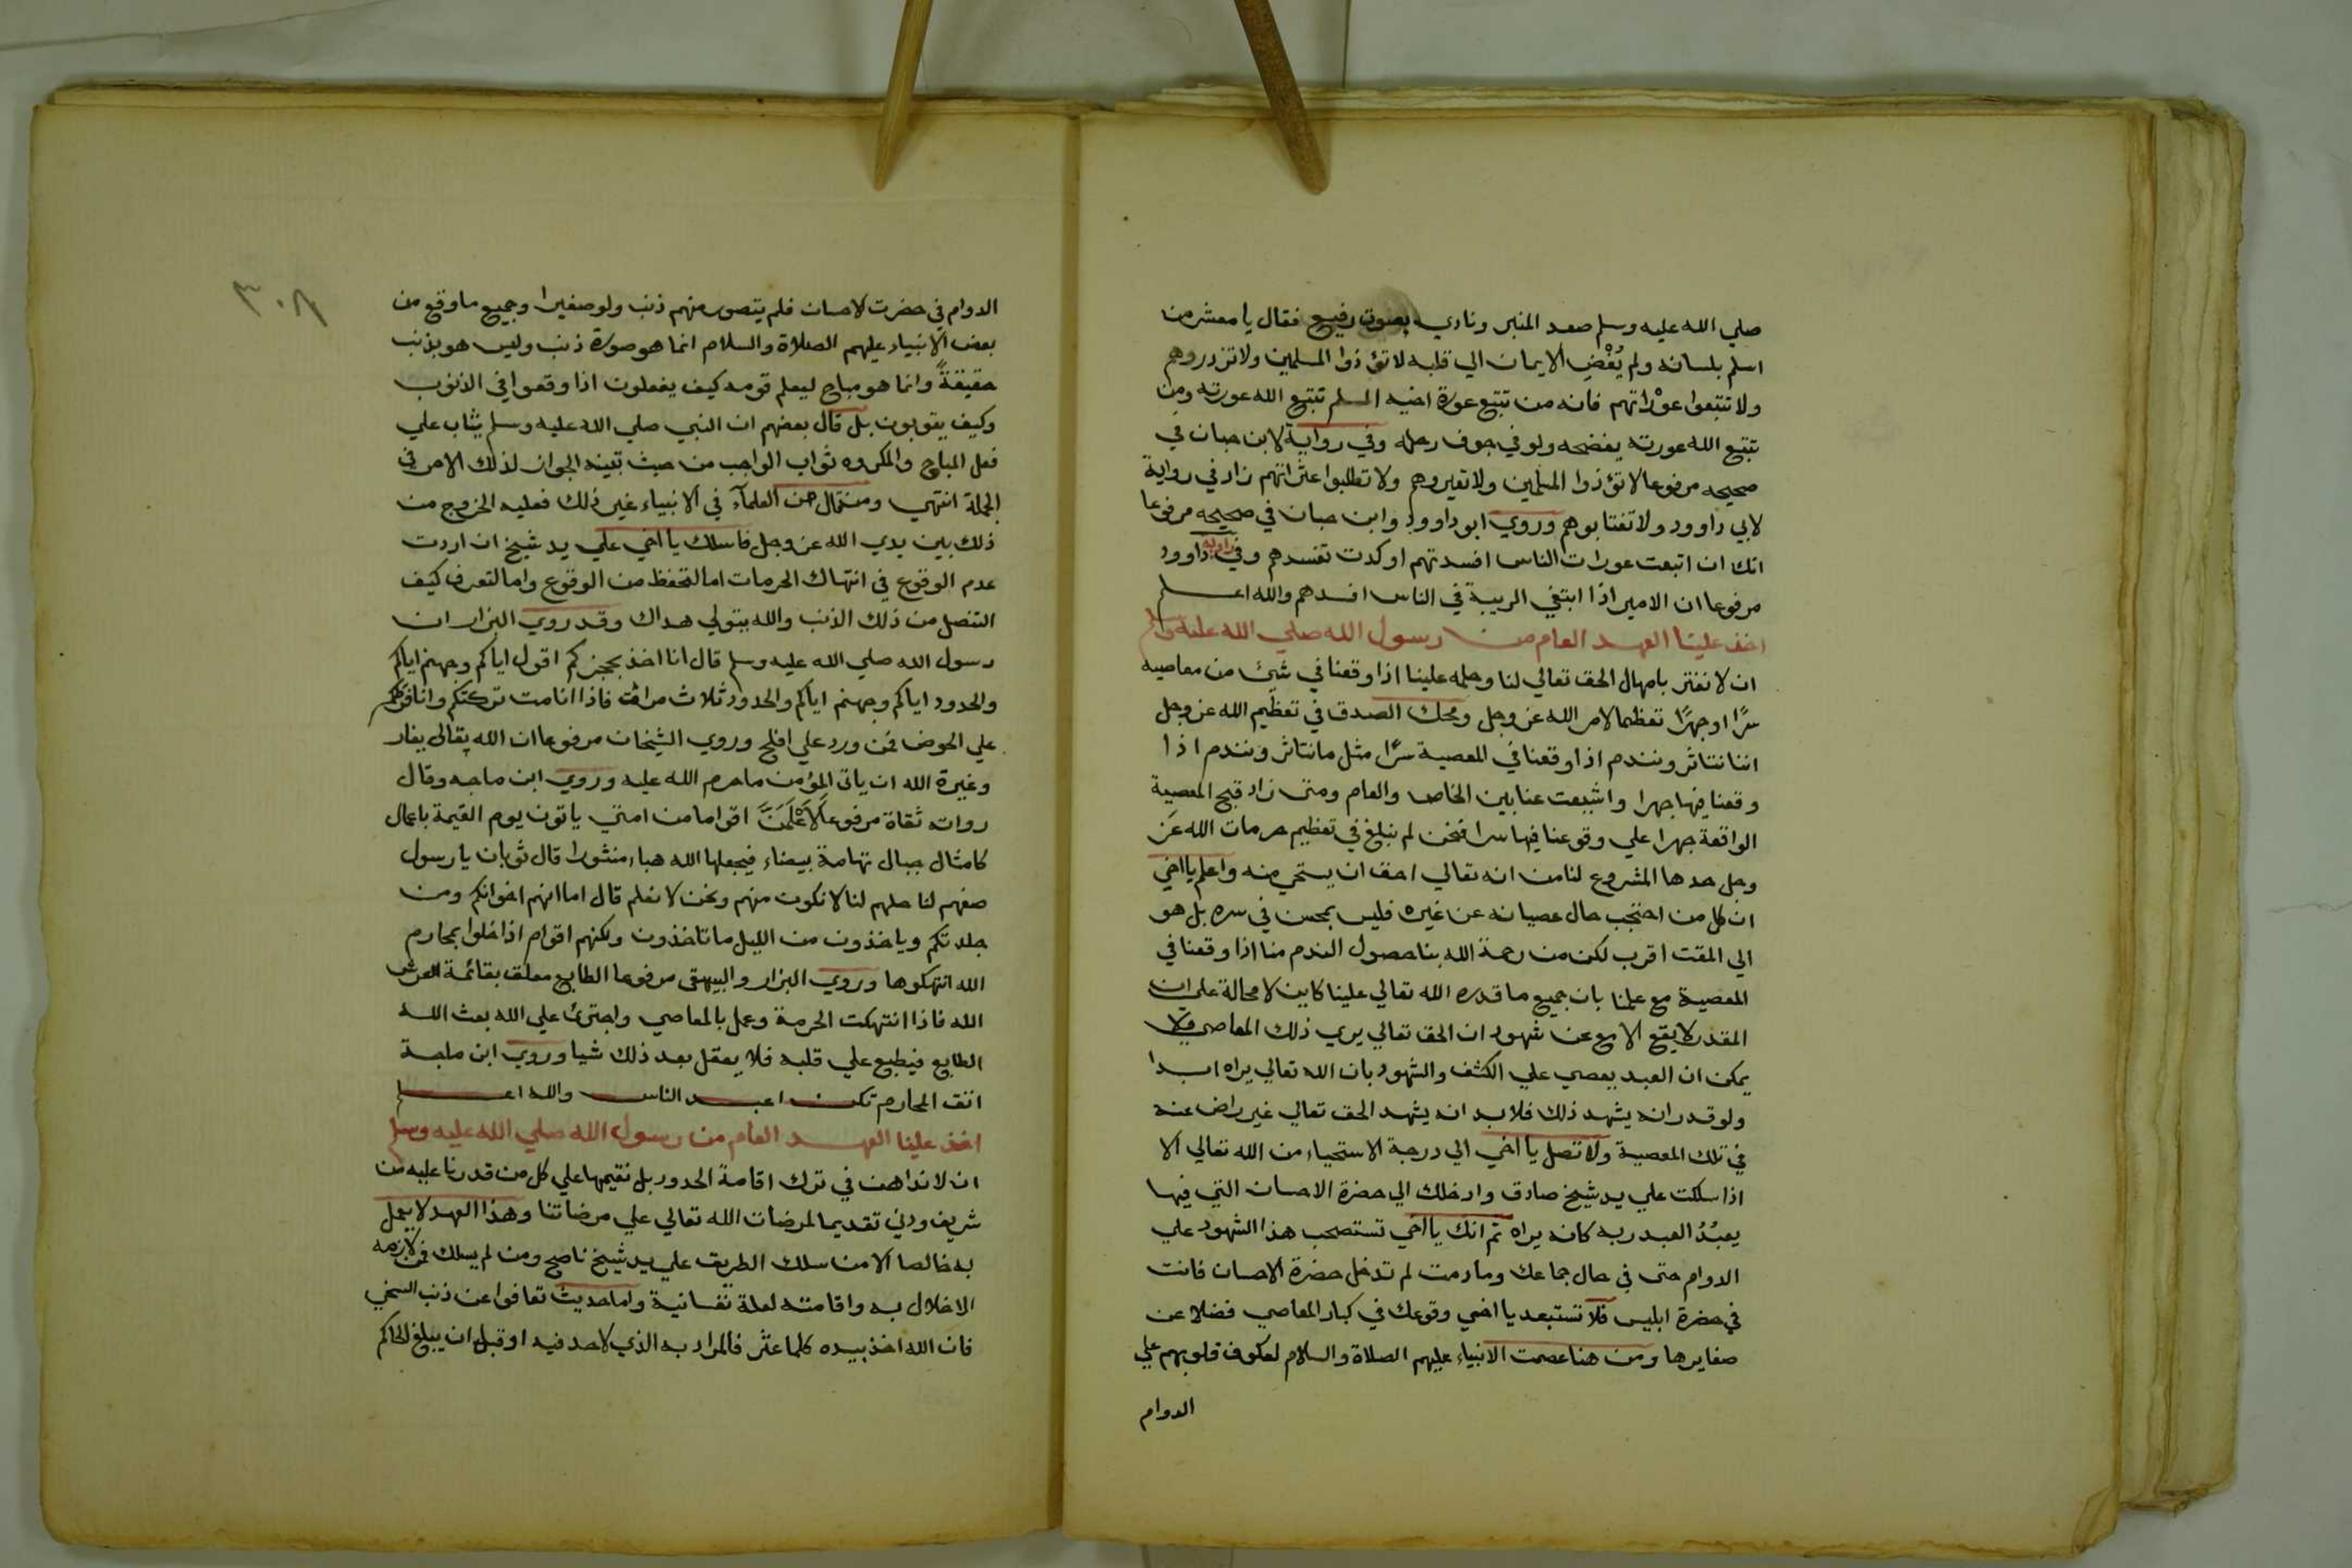 صلي الله عليه وسلم صعد المنبر ونادي بصوت رفيع فقال يا معشر من
اسلم بلسانه ولم يُفْضِ الايمان الي قلبه لا تؤذوا المسلمين ولا تزدروهم
ولا تتبعوا عوْراتهم فانه من تتبع عورة اخيه المسلم تتبع الله عورته ومن
تتبع الله عورته يفضحه ولو في جوف رحله وفي رواية لابن حبان في
صحيحه مرفوعا لا تؤذوا المسلمين ولا تعيروهم ولا تطلبوا عثراتهم زاد في رواية
لابي داوود ولا تغتابوهم وروي ابو داوود وابن حبان في صحيحه مرفوعا
انك ان اتبعت عورات الناس افسدتهم او كدت تفسدهم وفي رواية داوود
مرفوعا ان الامير اذا ابتغي الريبة في الناس افسدهم والله اعلم
اخذ علينا العهد العام من رسول الله صلي الله عليه وسلم
ان لا نغتر بامهال الحق تعالي لنا وحلمه علينا اذا وقعنا في شئ من معاصيه
سرًا او جهرًا تعظيما لامر الله عز وجل ومحك الصدق في تعظيم الله عز وجل
اننا نتاثر ونندم اذا وقعنا في المعصية سرًا مثل ما نتاثر ونندم اذا
وقعنا فيها جهرا واشيعت عنا بين الخاص والعام ومتى زاد قبح المعصية
الواقعة جهرا علي وقوعنا فيها سرا فنحن لم نبلغ في تعظيم حرمات الله عز
وجل حدها المشروع لنا من انه تعالي احق ان يستحي منه واعلم يا اخي
ان كل من احتجب حال عصيانه عن غيره فليس بمحسن في سره بل هو
الي المقت اقرب لكن من رحمة الله بنا حصول الندم منا اذا وقعنا في
المعصية مع علمنا بان جميع ما قدره الله تعالي علينا كاين لا محالة على ان
المقدر لا يقع الا مع عن شهود ان الحق تعالي يري ذلك المعاصي فلا
يمكن ان العبد يعصي علي الكشف والشهود بان الله تعالي يراه ابدا
ولو قدر انه يشهد ذلك فلابد انه يشهد الحق تعالي غير راض عنه
في تلك المعصية ولا تصل يا اخي الي درجة الاستحياء من الله تعالي الا
اذا سلكت علي يد شيخ صادق وادخلك الي حضرة الاحسان التي فيها
يعبُدُ العبد ربه كانه يراه ثم انك يا اخي تستصحب هذا الشهود علي
الدوام حتى في حال جماعك وما دمت لم تدخل حضرة الاحسان فانت
في حضرة ابليس فلا تستبعد يا اخي وقوعك في كبار المعاصي فضلا عن
صغايرها ومن هنا عصمت الانبياء عليهم الصلاة والسلام لعكوف قلوبهم علي
الدوام
٣٠٨
الدوام في حضرت لاحسان فلم يتصور منهم ذنب ولو صغيرا وجميع ما وقع من
بعض الانبياء عليهم الصلاة والسلام انما هو صورة ذنب وليس هو بذنب
حقيقةً وانما هو مباح ليعلم قومه كيف يفعلون اذا وقعوا في الذنوب
وكيف يتوبون بل قال بعضهم ان النبي صلي الله عليه وسلم يثاب علي
فعل المباح والمكروه ثواب الواجب من حيث تبينه الجواز لذلك الامر في
الجملة انتهي ومن قال من العلمآء في الانبياء غير ذلك فعليه الخروج من
ذلك بين يدي الله عز وجل فاسلك يا اخي علي يد شيخ ان اردت
عدم الوقوع في انتهاك الحرمات اما لتحفظ من الوقوع واما لتعرف كيف
التنصل من ذلك الذنب والله يتولي هداك وقد روي البزار ان
رسول الله صلي الله عليه وسلم قال انا اخذ بحجزكم اقول اياكم وجهنم اياكم
والحدود اياكم وجهنم اياكم والحدود ثلاث مرات فاذا انا مت تركتكم وانا فرطكم
علي الحوض فمن ورد علي افلح وروي الشيخان مرفوعا ان الله تعالى يغار
وغيرة الله ان ياتى المؤمن ما حرم الله عليه وروي ابن ماجه وقال
رواته ثقاة مرفوعا لَاَعْلَمَنَّ اقواما من امتي ياتون يوم القيمة باعمال
كامثال جبال تهامة بيضاء فيجعلها الله هباء منثورا قال ثوبان يا رسول
صفهم لنا حلهم لنا لا نكون منهم ونحن لا نعلم قال اما انهم اخوانكم ومن
جلدتكم وياخذون من الليل ما تاخذون ولكنهم اقوام اذا خلوا بمحارم
الله انتهكوها وروي البزار والبيهقى مرفوعا الطابع معلق بقائمة العرش
الله فاذا انتهكت الحرمة وعمل بالمعاصي واجترئ علي الله بعث الله
الطابع فيطبع علي قلبه فلا يعقل بعد ذلك شيا وروي ابن ماجة
اتق المحارم تكن اعبد الناس والله اعلم
اخذ علينا العهد العام من رسول الله صلي الله عليه وسلم
ان لا نداهن في ترك اقامة الحدود بل نقيمها علي كل من قدرنا عليه من
شريف ودني تقديما لمرضات الله تعالي علي مرضاتنا وهذا العهد لا يعمل
به خالصا الا من سلك الطريق علي يد شيخ ناصح ومن لم يسلك فمن لازمه
الاخلال به واقامته لعلة نفسانية واما حديث تعافوا عن ذنب السخي
فان الله اخذ بيده كلما عثر فالمراد به الذي لا حد فيه او قبل ان يبلغ الحاكم